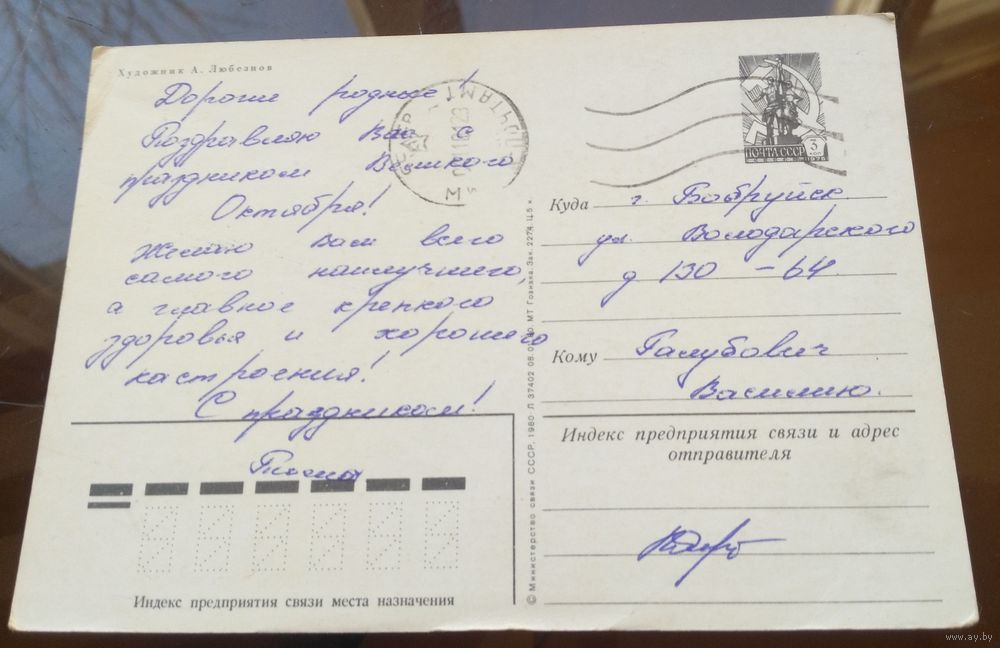 Художник А. Любезнов
Дорогие родные!
Поздравляю Вас с
праздником Великого
Октября!
Желаю Вам всего
самого наилучшего,
а главное крепкого
здоровья и хорошего
настроения!
С праздником!
ПОЧТА СССР 3 коп
1976
Куда г. Бобруйск
ул. Володарского
д 130 - 64
Кому Галубович
Василию.
Индекс предприятия связи и адрес
отправителя
Индекс предприятия связи места назначения
© Министерство связи СССР, 1980. Л 37402 МТ Гознака. Зак. 2274. Ц 5 к.
www.ay.by